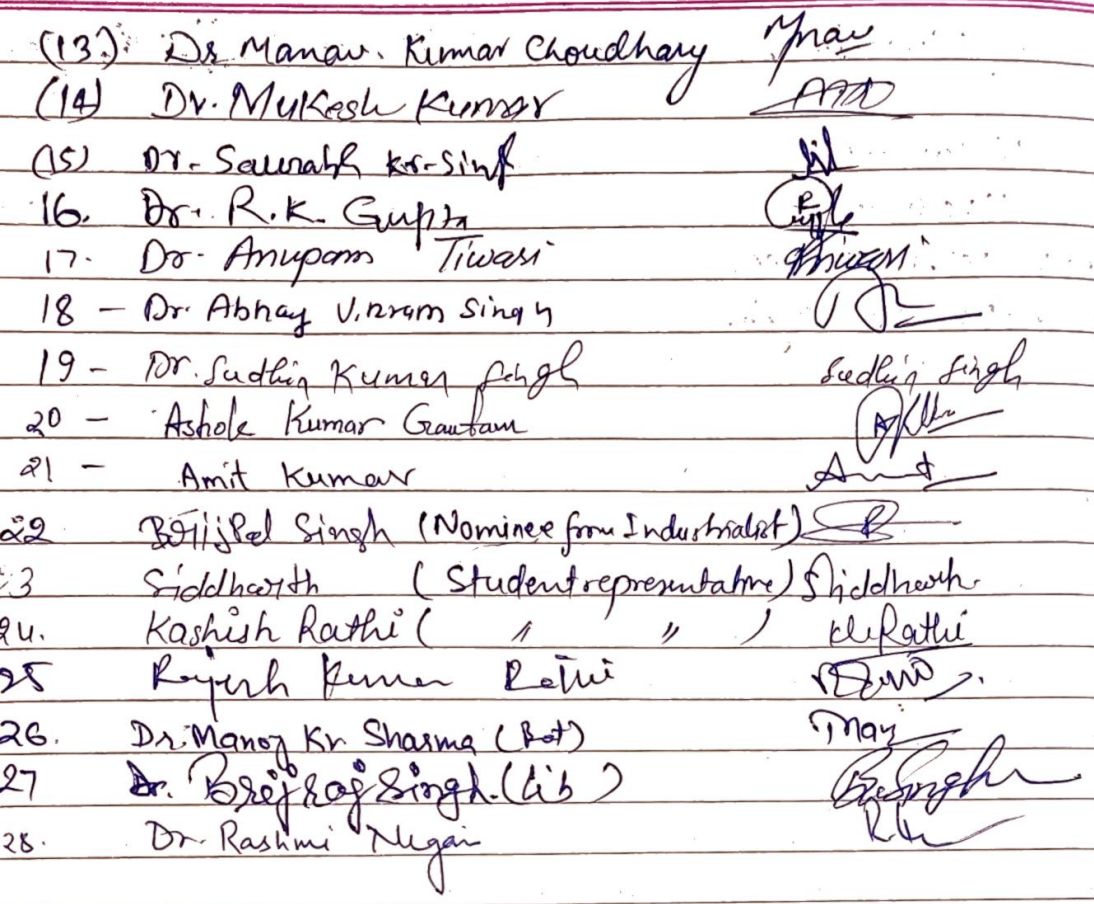 (13) Dr. Manav. Kumar Choudhary
(14) Dr. Mukesh Kumar
(15) Dr. Saurabh Kr. Singh
16. Dr. R.K. Gupta
17. Dr. Anupam Tiwari Atiwari
18 - Dr. Abhay Vikram Singh
19 - Dr. Sudhir Kumar Singh Sudhir Singh
20 - Ashok Kumar Gautam
21 - Amit Kumar Amit
22 Singh (Nominee from Industrialist)
3 Siddharth (Student representative) Siddharth
24. Kashish Rathi ( " " ) Rathi
25 Rajesh Kumar Rathi
26. Dr. Manoj Kr Sharma (Bot)
27 Dr. Brijraj Singh. (Lib) B.Singh
28. Dr. Rashmi Nigam